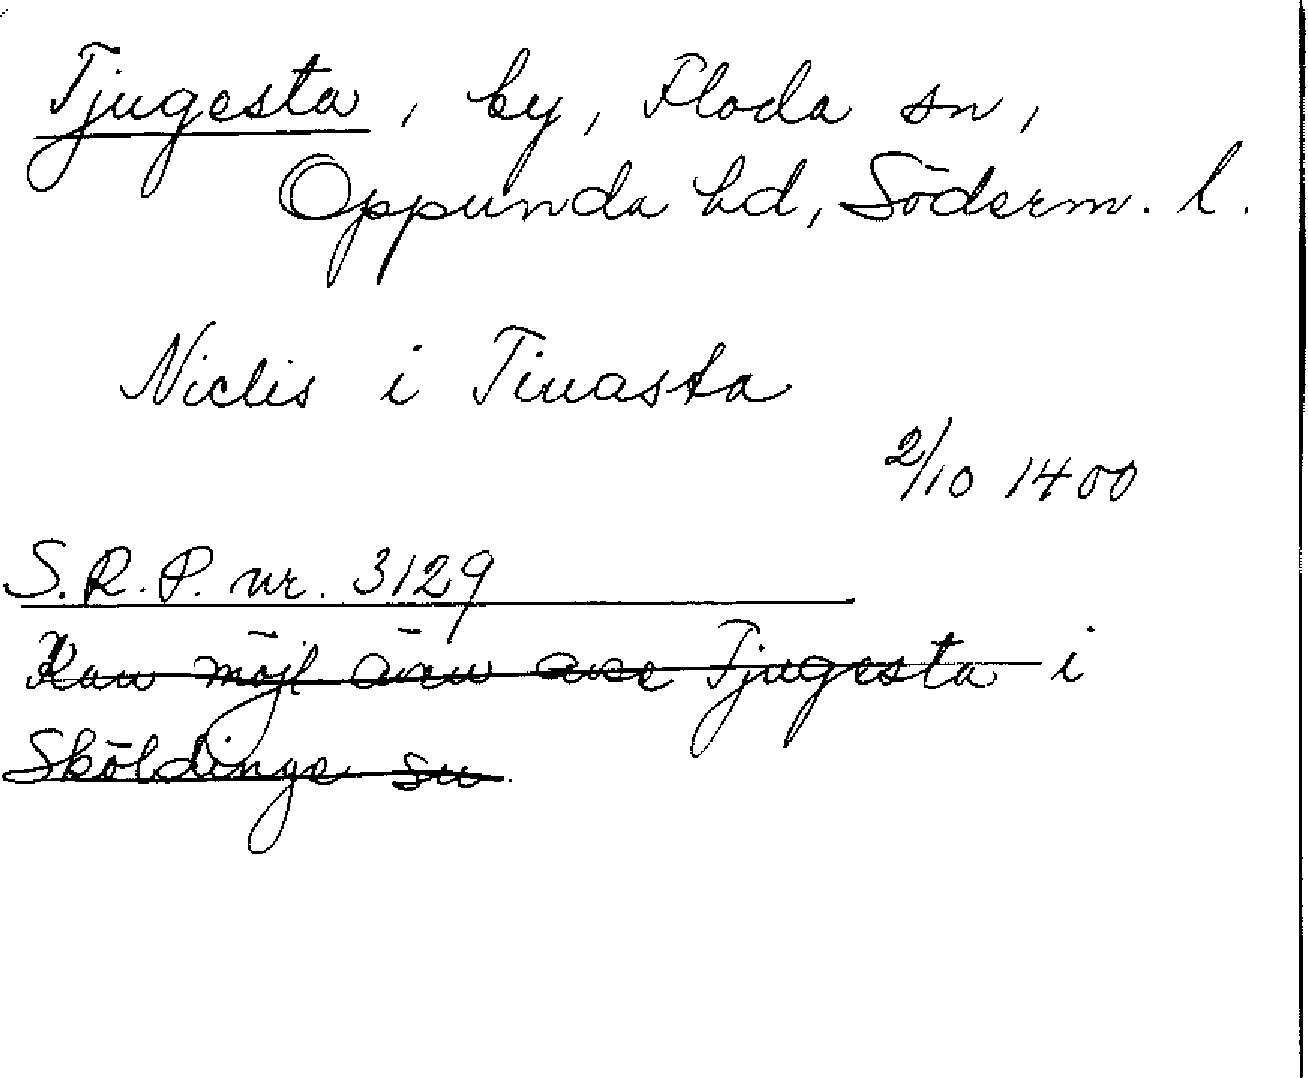 Tjugesta, by, Floda sn,
Oppunda hd, Söderm. l.
Niclis i Tiuasta
2/10 1400
S.R.P. nr. 3129
Kan möjl även avse Tjugesta i
Sköldinge sn.